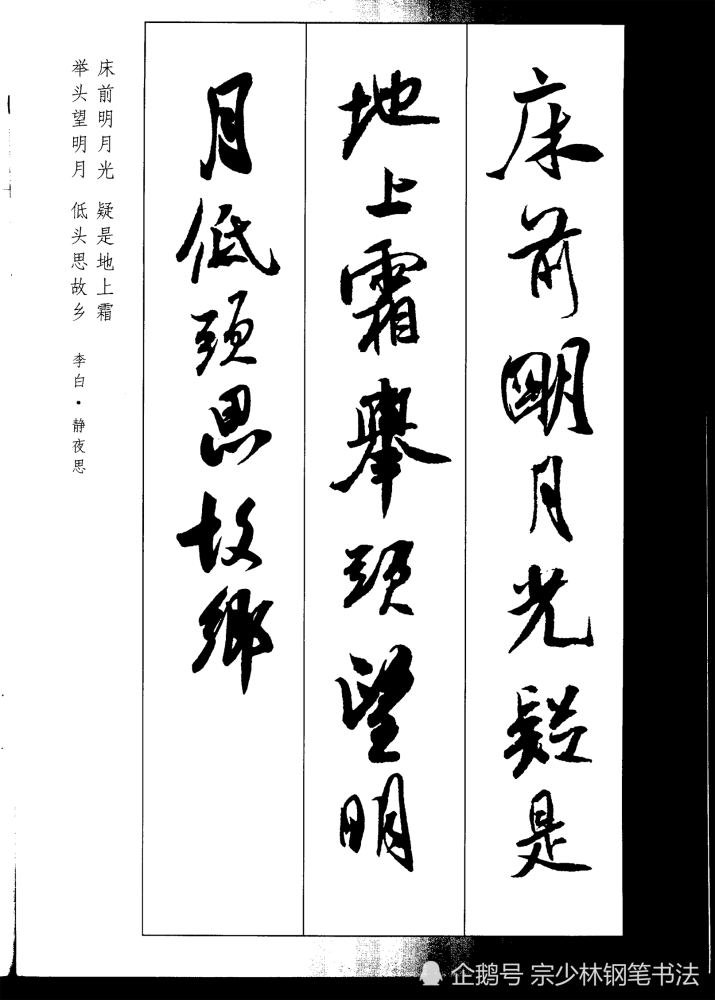 床前明月光疑是
地上霜舉頭望明
月低頭思故鄉
床前明月光 疑是地上霜
举头望明月 低头思故乡 李白·静夜思
企鹅号 宗少林钢笔书法